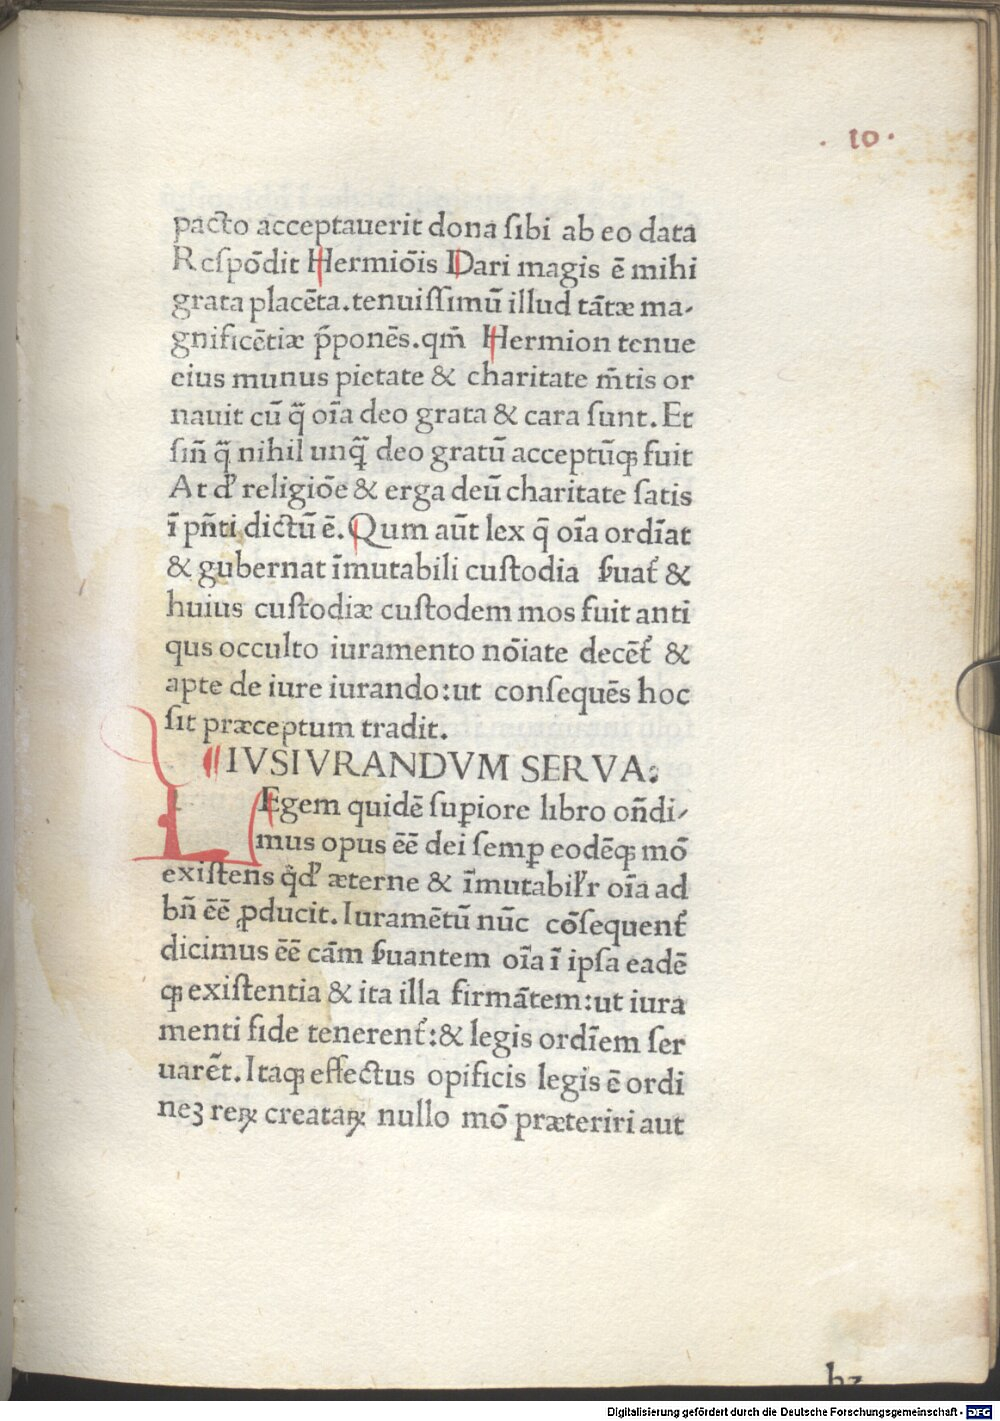 · 10 ·
pacto acceptauerit dona ſibi ab eo data
Reſpōdit Hermiōis Dari magis ē mihi
grata placēta.tenuiſſimū illud tātæ ma-
gnificētiæ p̄ponēs.qm̄ Hermion tenue
eius munus pietate & charitate m̄tis or
nauit cū q̄ oīa deo grata & cara ſunt. Et
ſin̄ q̄ nihil unq̄ deo gratū acceptūqꝫ fuit
At d' religiōe & erga deū charitate ſatis
ī pn̄ti dictū ē. Qum aūt lex q̄ oīa ordīat
& gubernat īmutabili cuſtodia ẜuat̄ &
huius cuſtodiæ cuſtodem mos fuit anti
qus occulto iuramento nōiate decēt̄ &
apte de iure iurando:ut conſequēs hoc
ſit præceptum tradit.
IVSIVRANDVM SERVA:
LEgem quidē ſuꝑiore libro on̄di-
mus opus ēē dei ſemꝑ eodēqꝫ mō
exiſtens q̄d' æterne & īmutabilr̄ oīa ad
bn̄ ēē ꝓducit. Iuramētū nūc cōſequent̄
dicimus ēē cām ẜuantem oīa ī ipſa eadē
qꝫ exiſtentia & ita illa firmātem:ut iura
menti fide tenerent̄:& legis ordīem ſer
uarēt. Itaqꝫ effectus opificis legis ē ordi
neꝫ reꝝ creataꝝ nullo mō præteriri aut
Digitalisierung gefördert durch die Deutsche Forschungsgemeinschaft - DFG